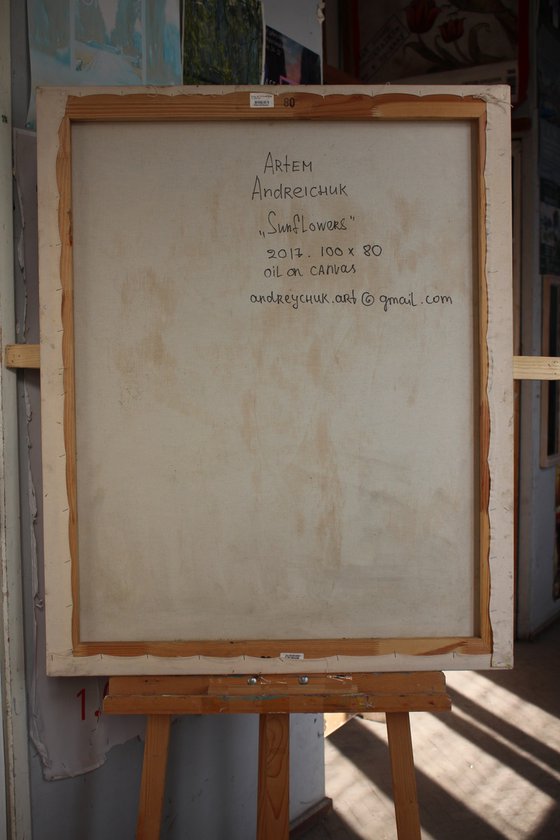 80
Artem
Andreichuk
„Sunflowers"
2017. 100 x 80
oil on canvas
andreychuk.art@gmail.com
1.